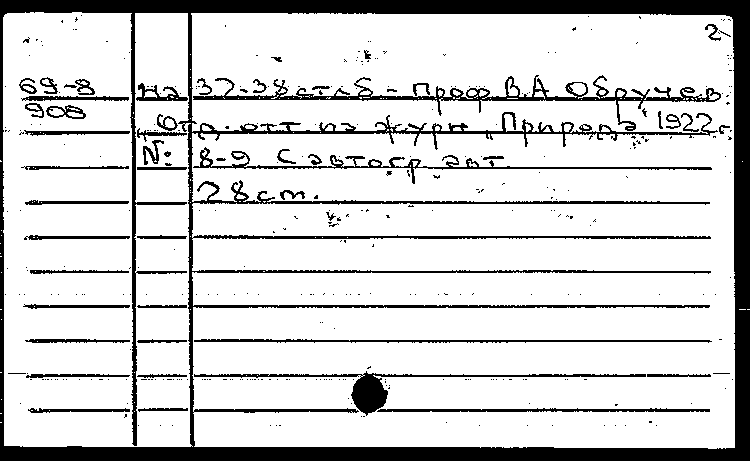 2
69-8 на 37-38 стлб - Проф В.А Обручев.
908
Отд. отт из журн „Природа" 1922 г.
№: 8-9 С автогр. авт.
28 cm.